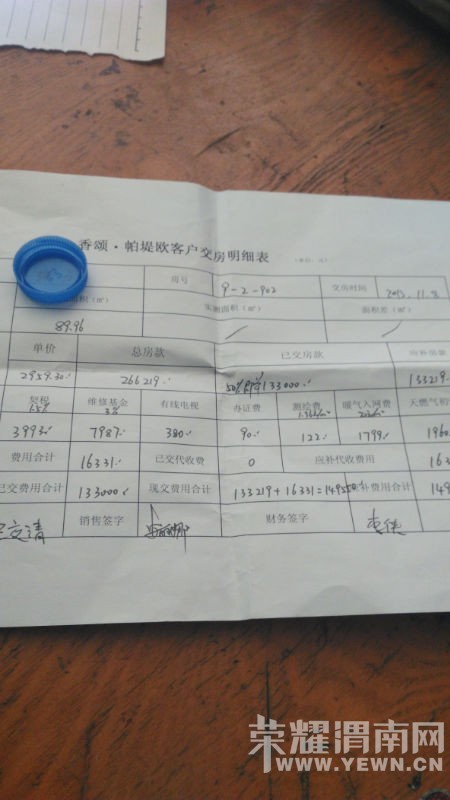 香颂·帕堤欧客户交房明细表 (单位:元)
房号 9-2-902 交房时间 2013.11.8
面积(㎡) 实测面积(㎡) 面积差(㎡)
89.96 / /
单价 总房款 已交房款 应补房款
2959.30 266219 50% 133000 133219
契税 1.5% 维修基金 3% 有线电视 办证费 测绘费 暖气入网费 天燃气初
3993 7987 380 90 122 1799 1960
费用合计 16331 已交代收费 0 应补代收费用 163
已交费用合计 133000 现交费用合计 133219+16331=149550 补费用合计 149
销售签字 财务签字
荣耀渭南网
WWW.YEWN.CN